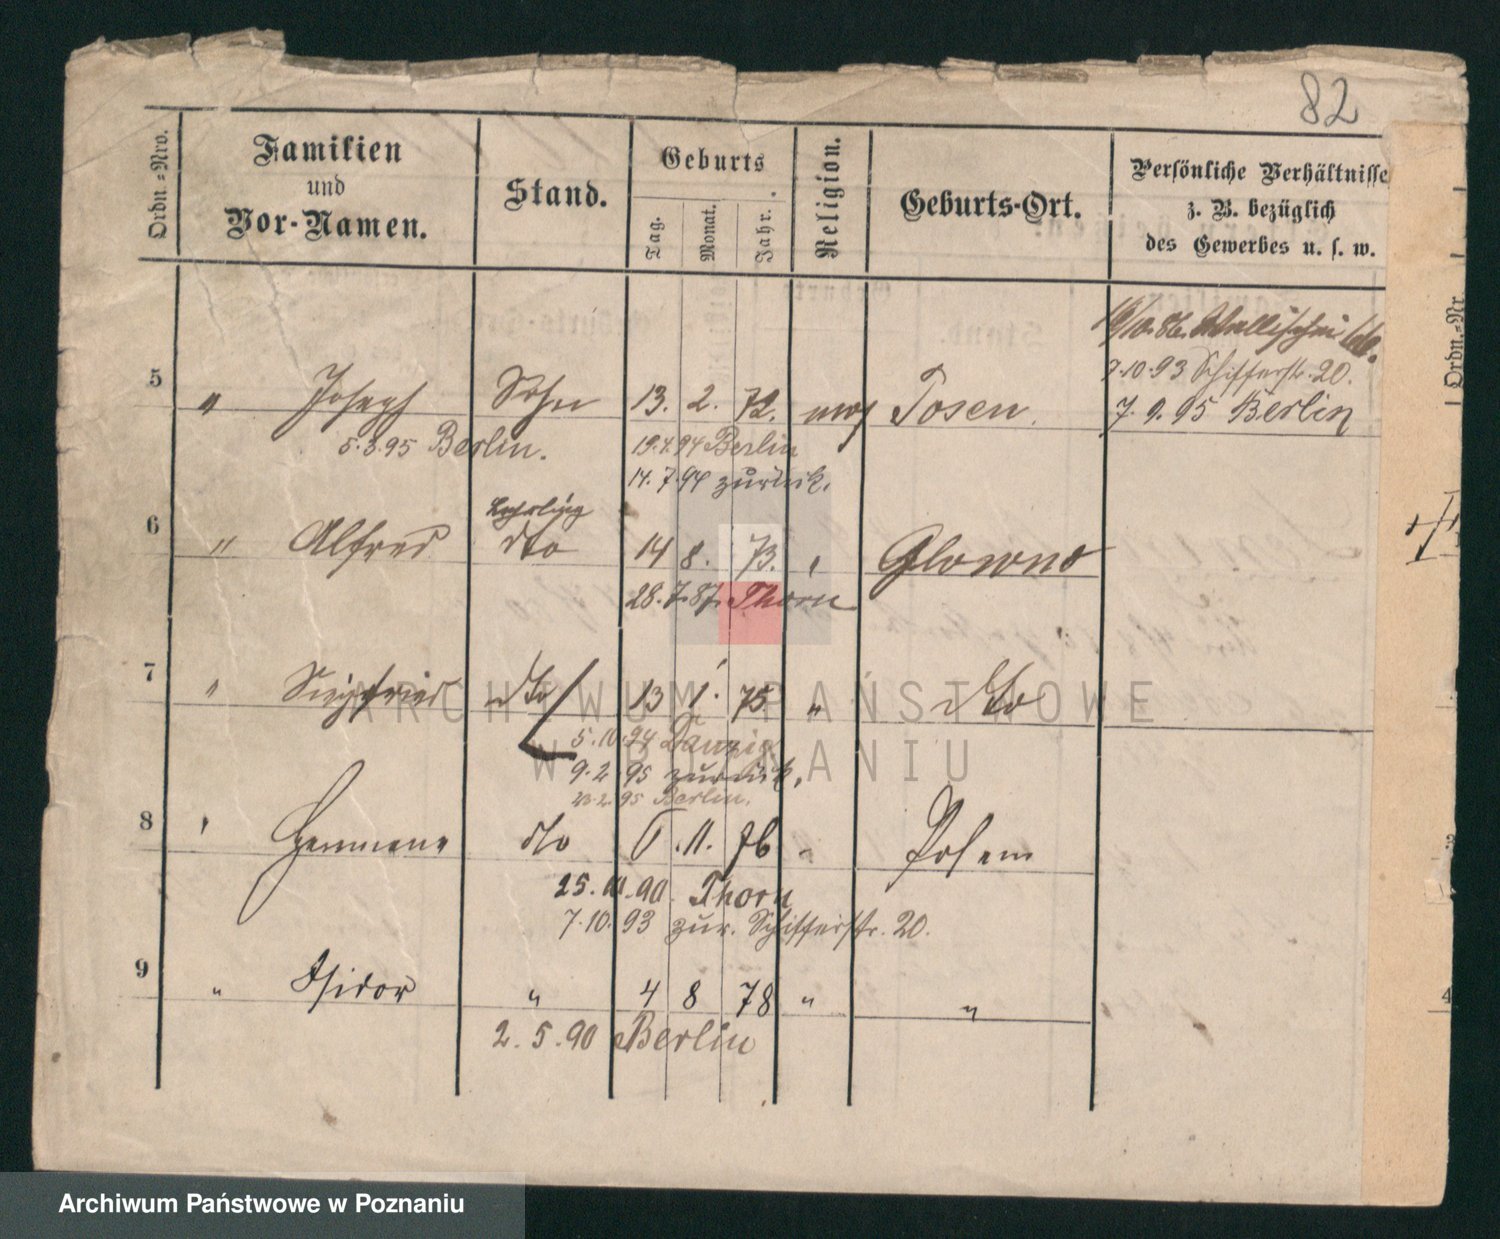 82
Ordn.=Nro.
Familien
und
Vor-Namen.
Stand.
Geburts
Tag.
Monat.
Jahr.
Religion.
Geburts-Ort.
Persönliche Verhältnisse
z. B. bezüglich
des Gewerbes u. s. w.
86. Wallischei
7.10.93 Schifferstr. 20.
5 " Joseph Sohn 13. 2. 72. mos Posen 7. 9. 95 Berlin
5.3.95 Berlin. 19.4.94 Berlin
14.7.94 zurück.
Lehrling
6 " Alfred dto 14 8. 73. " Glowno
28.7.87. Thorn
7 " Siegfried dto 13 1. 75 " dto
5.10.94 Danzig
9.2.95 zurück.
2.95 Berlin.
8 " Hermann dto 11. 76 " Posen
25. .90. Thorn
7.10.93 zur. Schifferstr. 20.
9 " Isidor " 4 8 78 " "
2.5.90 Berlin
Ordn.=Nr
4
ARCHIWUM PAŃSTWOWE
W POZNANIU
Archiwum Państwowe w Poznaniu